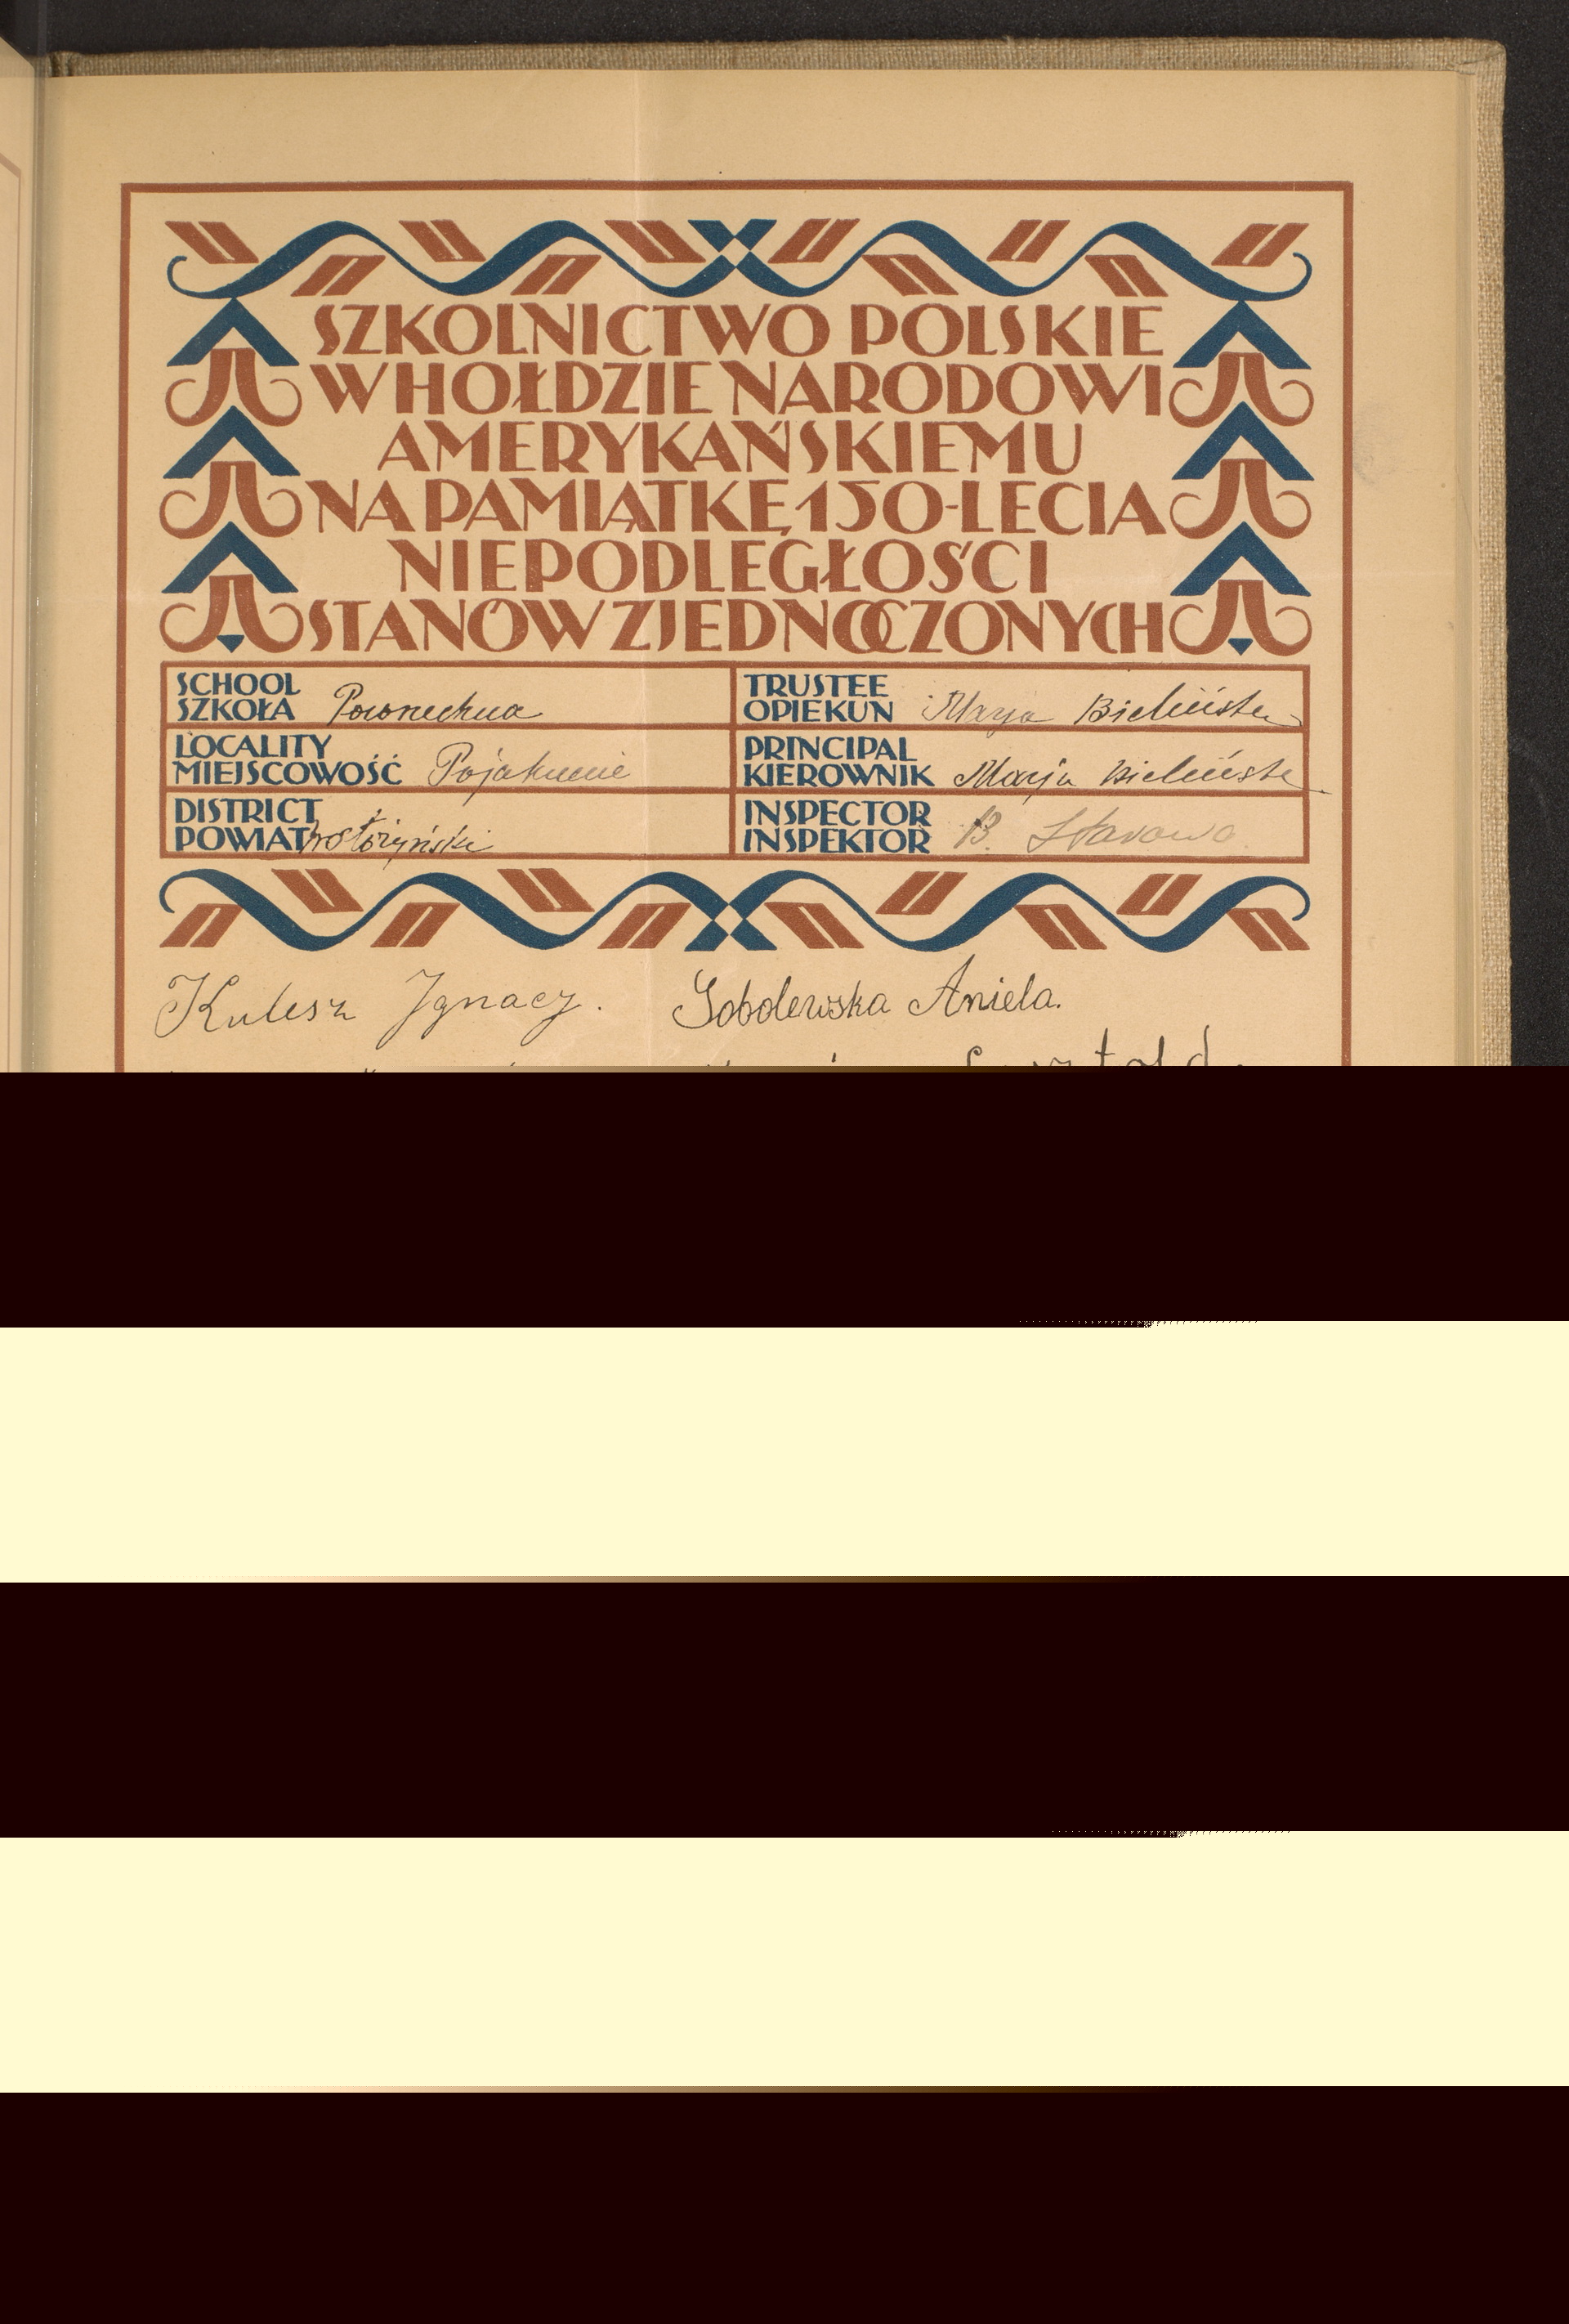 SZKOLNICTWO POLSKIE
W HOŁDZIE NARODOWI
AMERYKAŃSKIEMU
NA PAMIĄTKĘ 150-LECIA
NIEPODLEGŁOŚCI
STANÓW ZJEDNOCZONYCH
SCHOOL
SZKOŁA Powszechna
TRUSTEE
OPIEKUN Marja Bielińska
LOCALITY
MIEJSCOWOŚĆ Pojakunie
PRINCIPAL
KIEROWNIK Marja Bielińska
DISTRICT
POWIAT
INSPECTOR
INSPEKTOR B.
Kulesz Ignacy. Sobolewska Aniela.